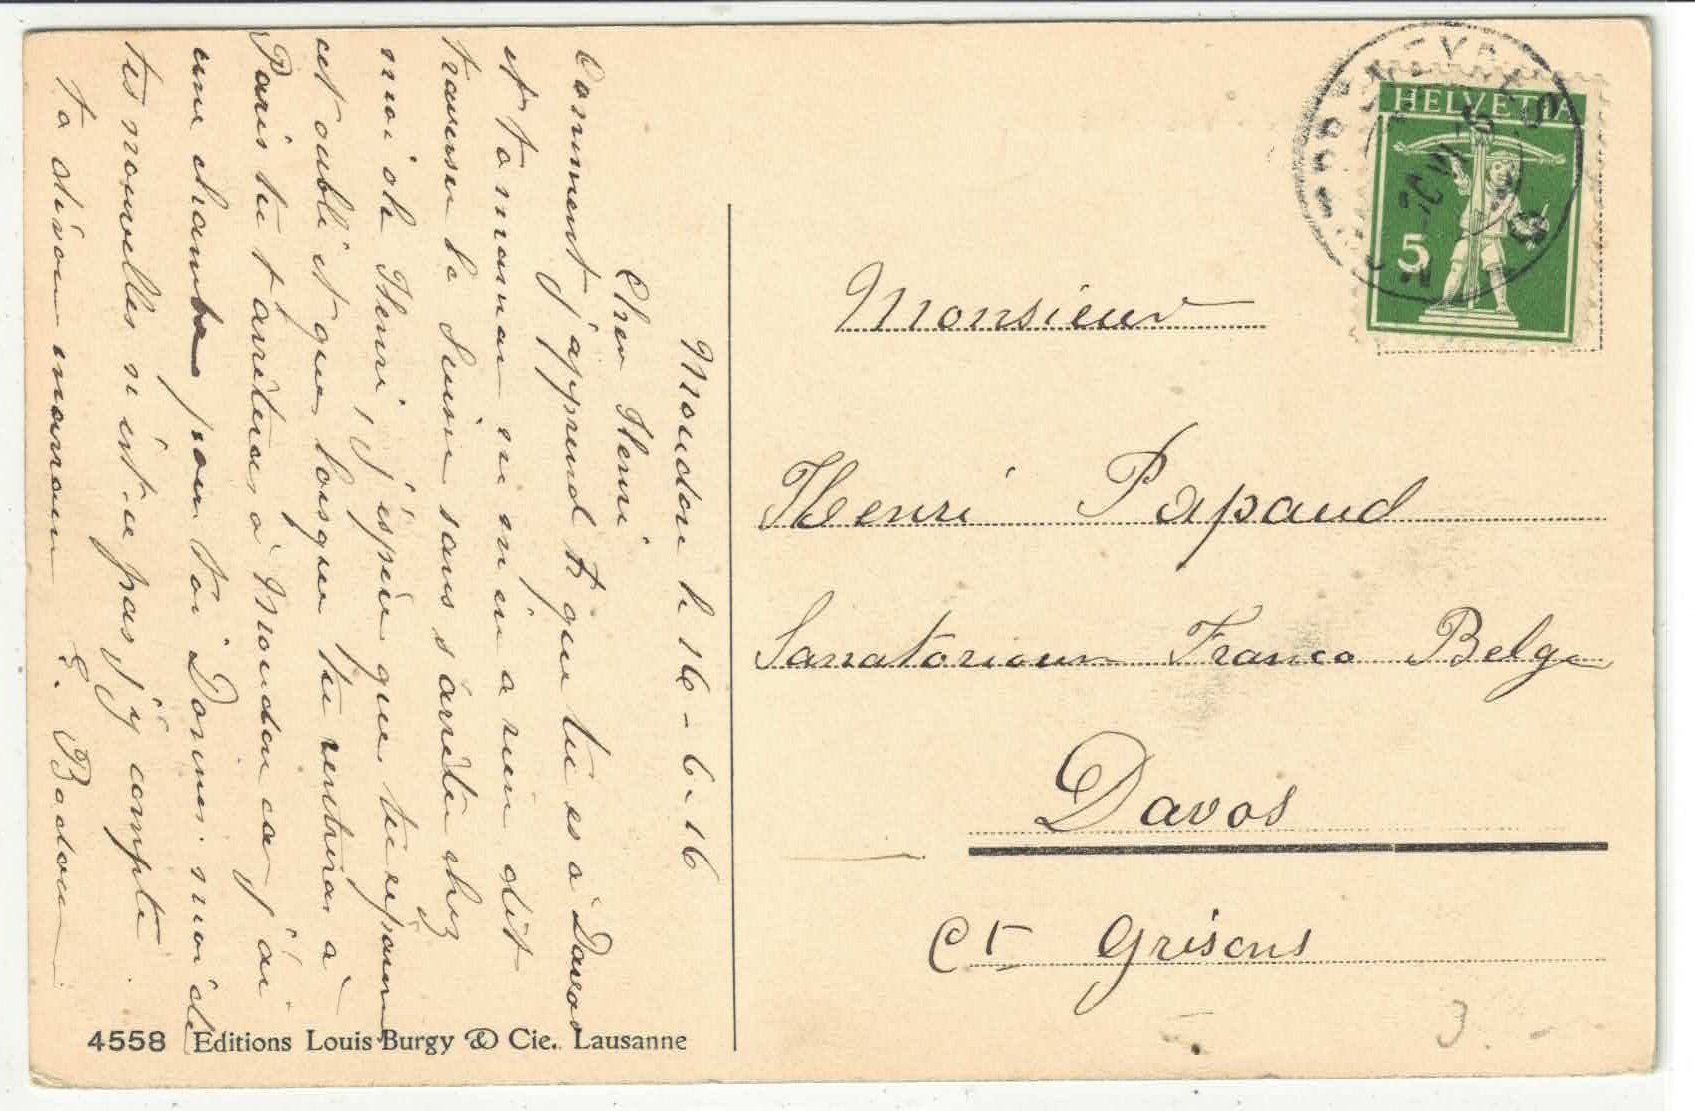 Moudon le 16-6-16
Cher Henri
Comment j'apprend t que tu es à Davos
et ta maman ne m'en a rien dit
traverser la Suisse sans s'arrêter chez
moi oh Henri, j'espère que tu repareras
cet oubli et que lorsque tu rentreras à
Paris tu t'arrêteras à Moudon car j'ai
une chambre pour toi Donnes moi de
tes nouvelles n'est-ce pas j'y compte.
ta dévouée marraine
E. Badoux
4558 Editions Louis Burgy & Cie. Lausanne
HELVETIA
5
Monsieur
Henri Papaud
Sanatorium Franco Belge
Davos
Ct Grisons
3.-